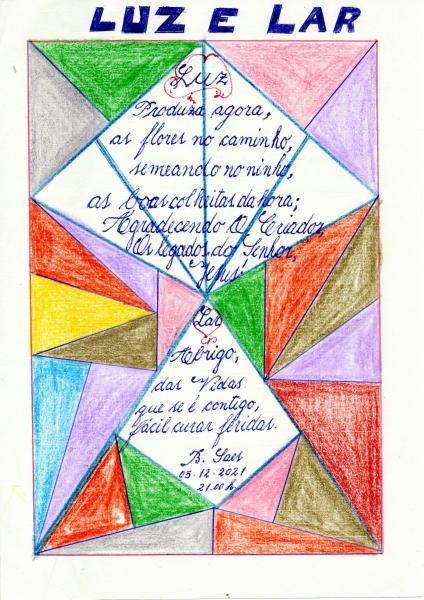 LUZ E LAR
Luz
Produza agora,
as flores no caminho,
semeando no ninho,
as boas colheitas da hora;
Agradecendo O Criador,
Os legados do Senhor,
Jesus!
Lar
Abrigo,
das Vidas
que se é contigo,
fácil curar feridas.
B. Saes
05.12.2021
21.00h